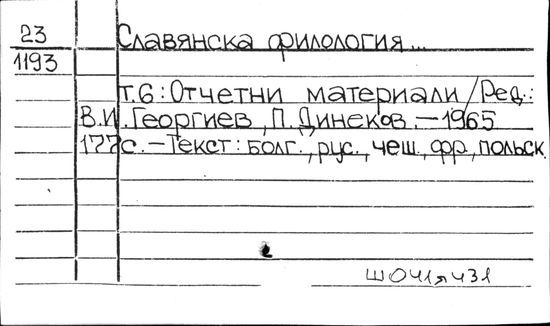 23
1193
Славянска филология...
т.6: Отчетни материали / Ред.:
В.И. Георгиев, П. Динеков. – 1965
177с. – Текст: болг., рус., чеш., фр, польск.